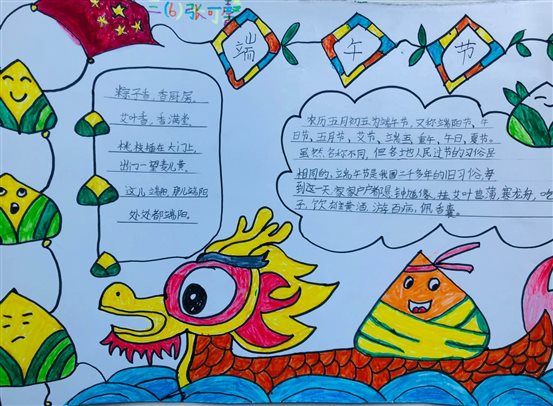 二(6)张可馨
端午节
粽子香，香厨房。
艾叶香，香满堂。
桃枝插在大门上，
出门一望麦儿黄。
这儿端阳，那儿端阳
处处都端阳。
农历五月初五为端午节，又称端阳节、午
日节、五月节、艾节、端五、重午、午日、夏节。
虽然名称不同，但各地人民过节的习俗是
相同的，端午节是我国二千多年的旧习俗，每
到这一天，家家户户都悬钟馗像，挂艾叶菖蒲，赛龙舟，吃
子，饮雄黄酒，游百病，佩香囊。